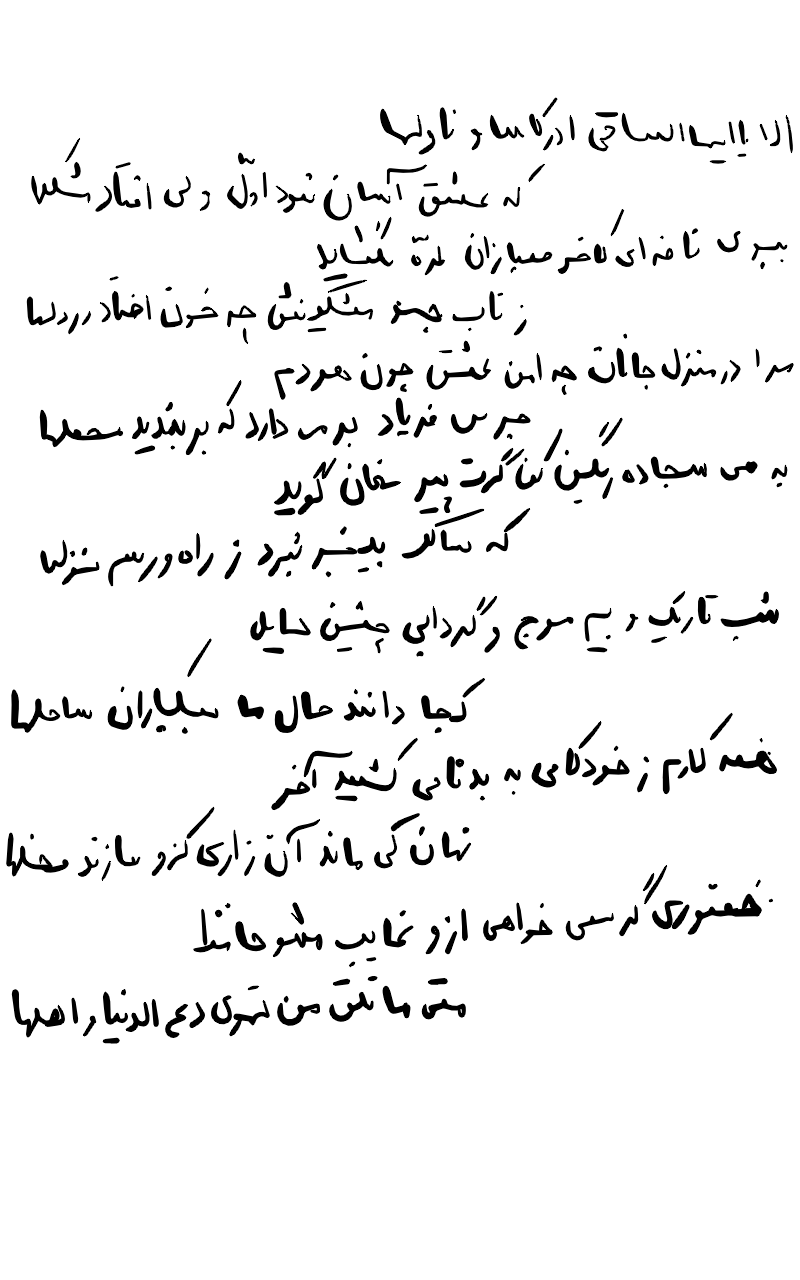 الا یا ایها الساقی ادر کاسا و ناولها
که عشق آسان نمود اول ولی افتاد مشکلها
ببوی نافه‌ای کاخر صبا زان طره بگشاید
ز تاب جعد مشکینش چه خون افتاد در دلها
مرا در منزل جانان چه امن عیش چون هر دم
جرس فریاد می دارد که بر بندید محملها
به می سجاده رنگین کن گرت پیر مغان گوید
که سالک بیخبر نبود ز راه و رسم منزلها
شب تاریک و بیم موج و گردابی چنین هایل
کجا دانند حال ما سبکباران ساحلها
همه کارم ز خودکامی به بدنامی کشید آخر
نهان کی ماند آن رازی کزو سازند محفلها
حضوری گر همی خواهی ازو غایب مشو حافظ
متی ما تلق من تهوی دع الدنیا و اهملها